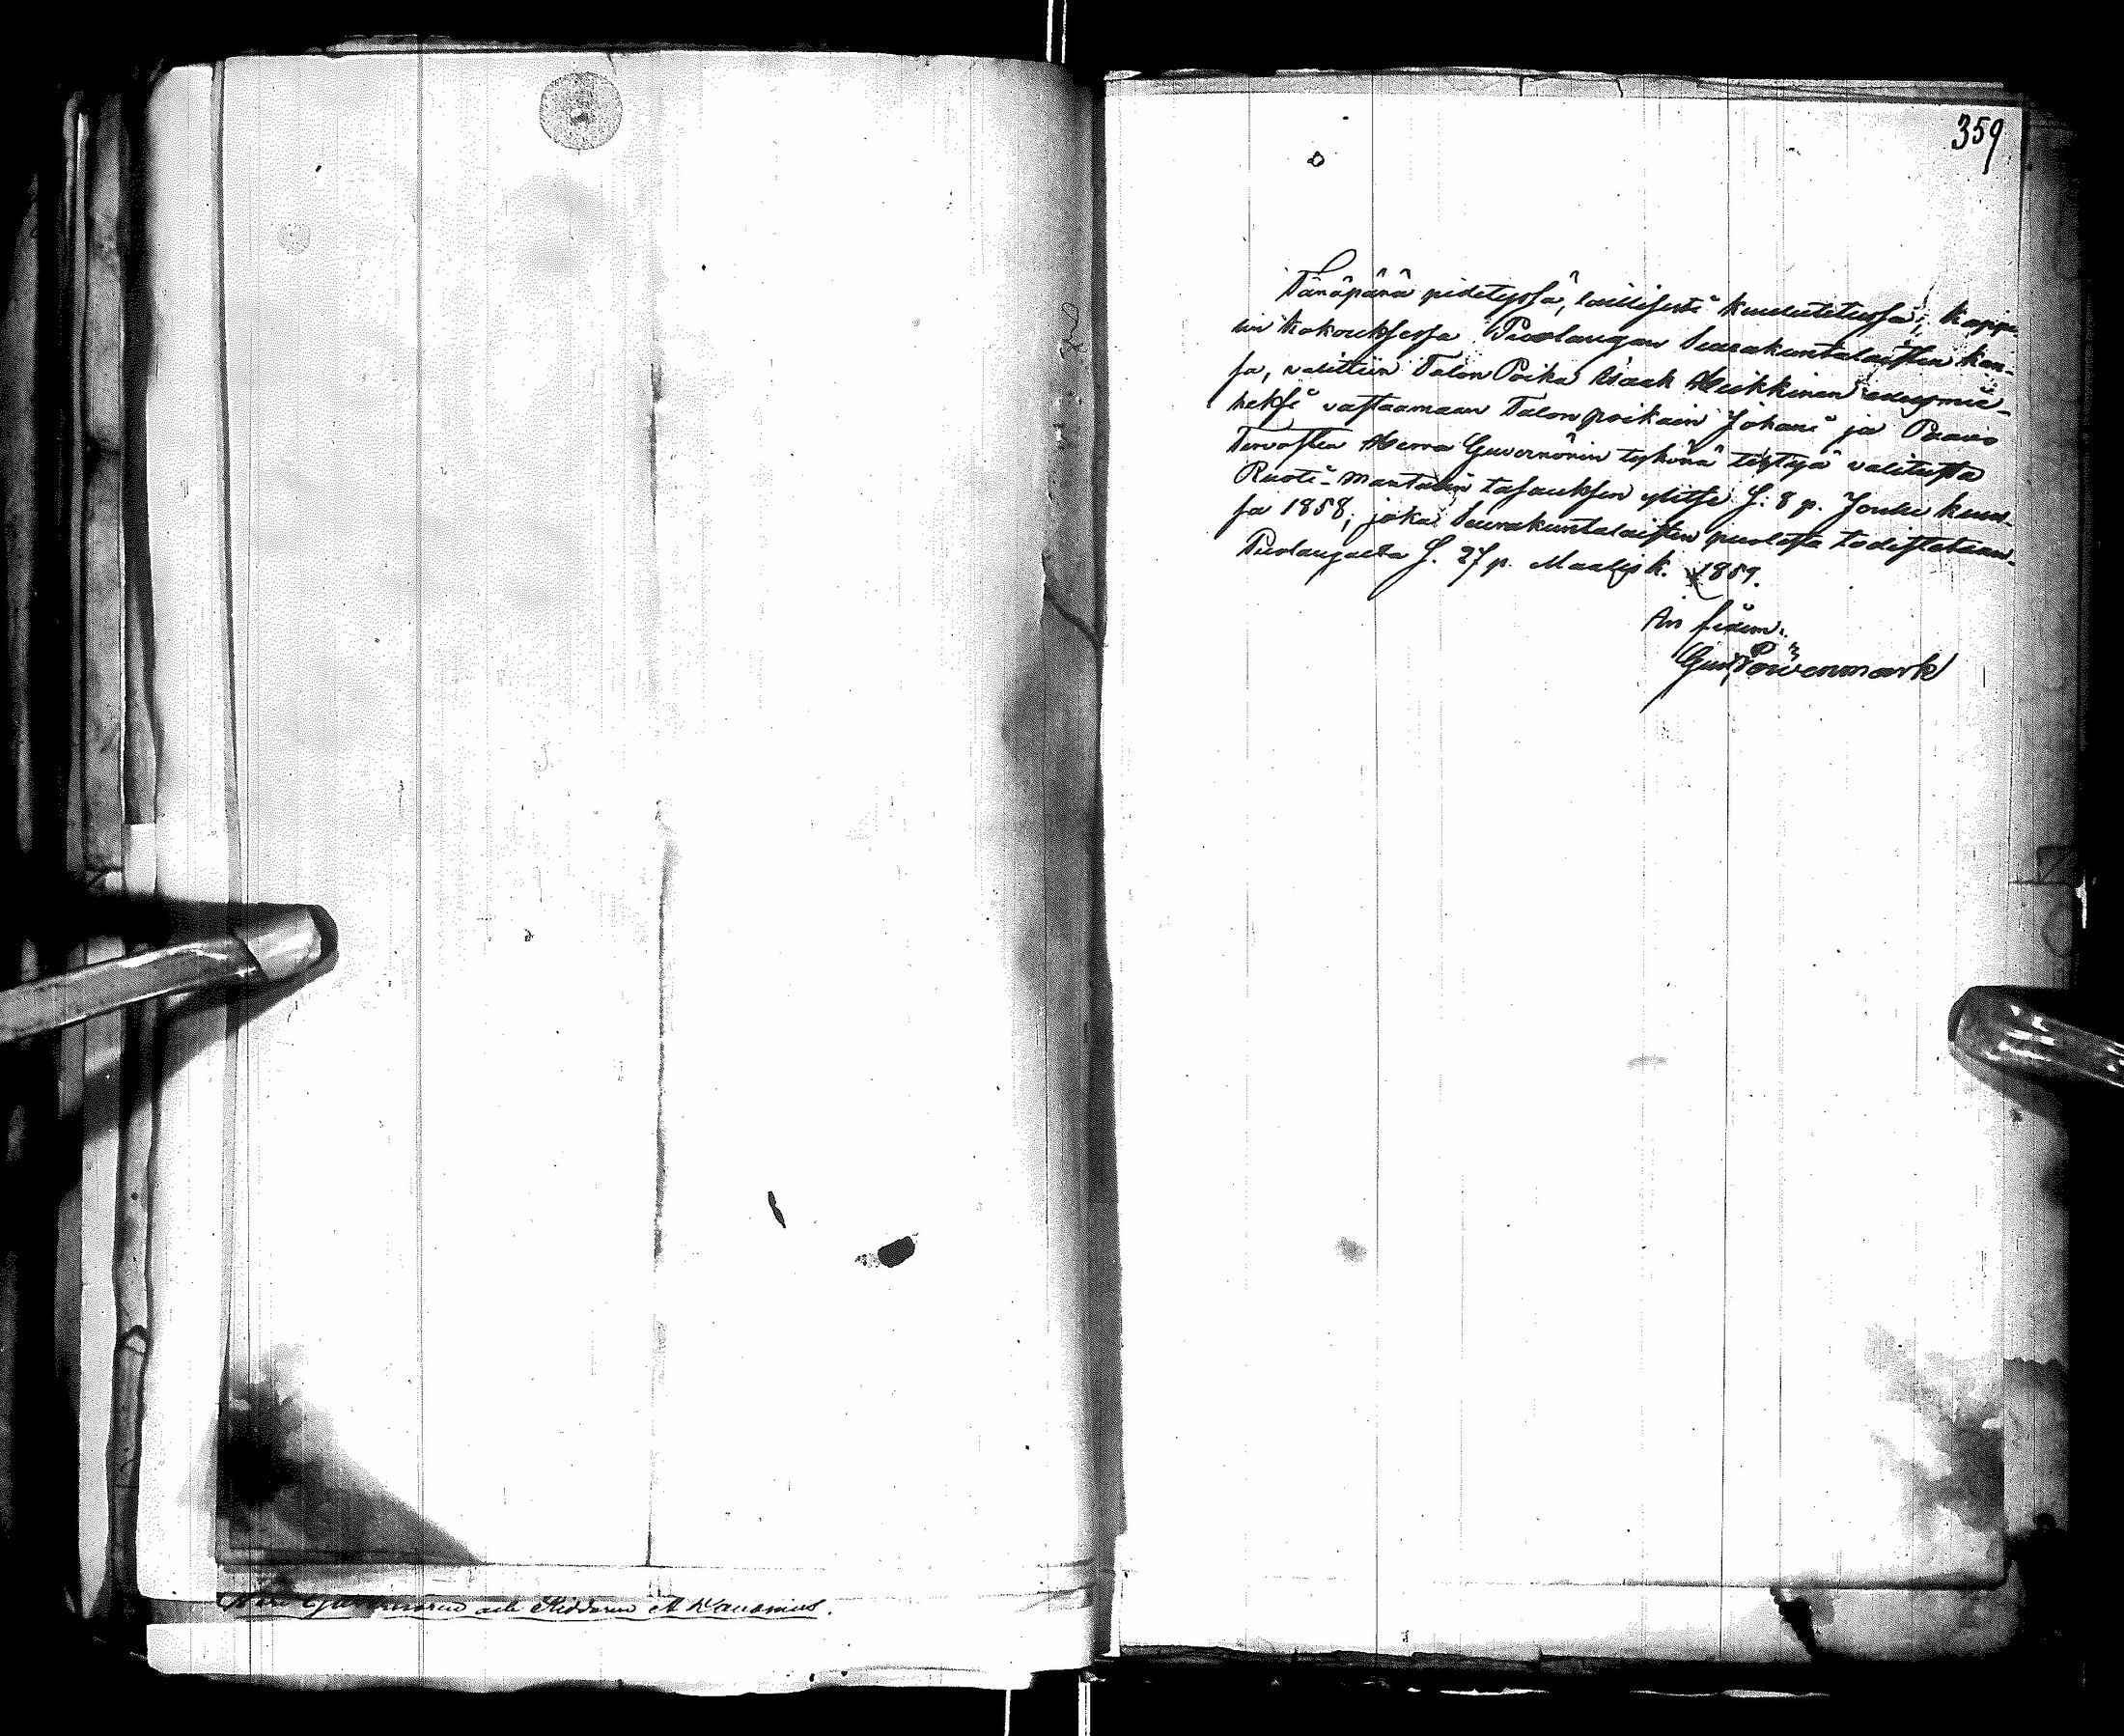 359
Tänäpänä pidetyssä, laillisesti kuulutetussa, kappe-
lin kokouksessa Puolangan Seurakuntalaisten kan-
sa, valittiin Talon Poika Isaak Heikkinen edesmie-
heksi vastaamaan Talon poikain Johani ja Paavo
Tervosten Herra Guvernörin tykönä tehtyä valitusta
Ruoti-mantalin tasauksen ylitse S. 8 p. Joulu kuus-
sa 1858; joka Seurakuntalaisten puolesta todistetaan.
Puolangalla S. 27 p. Maalisk. 1859.
In fidem.
Gust.
Herr Guverneuren och Riddaren